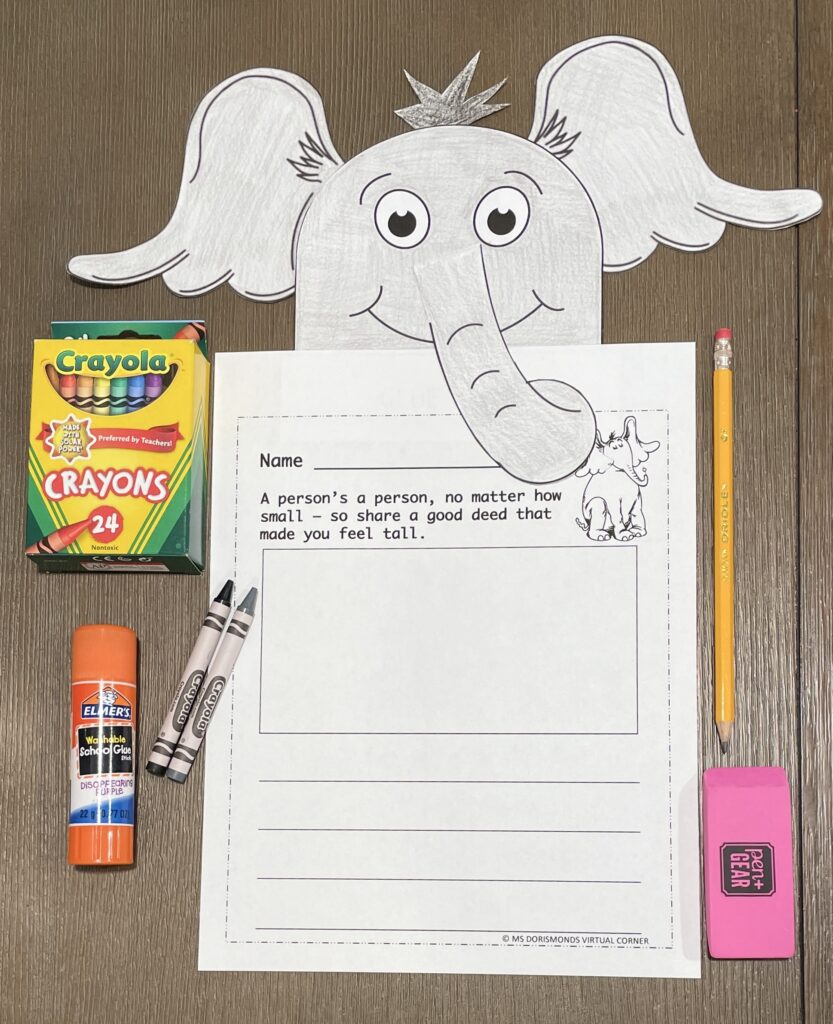 Crayola
MADE
WITH
SOLAR
POWER!
Preferred by Teachers!
CRAYONS
24
Nontoxic
Name
A person's a person, no matter how
small – so share a good deed that
made you feel tall.
© MS DORISMONDS VIRTUAL CORNER
Crayola
Crayola
ELMER'S
Washable
School Glue
Stick
DISAPPEARING
PURPLE
22 g
pen+
GEAR